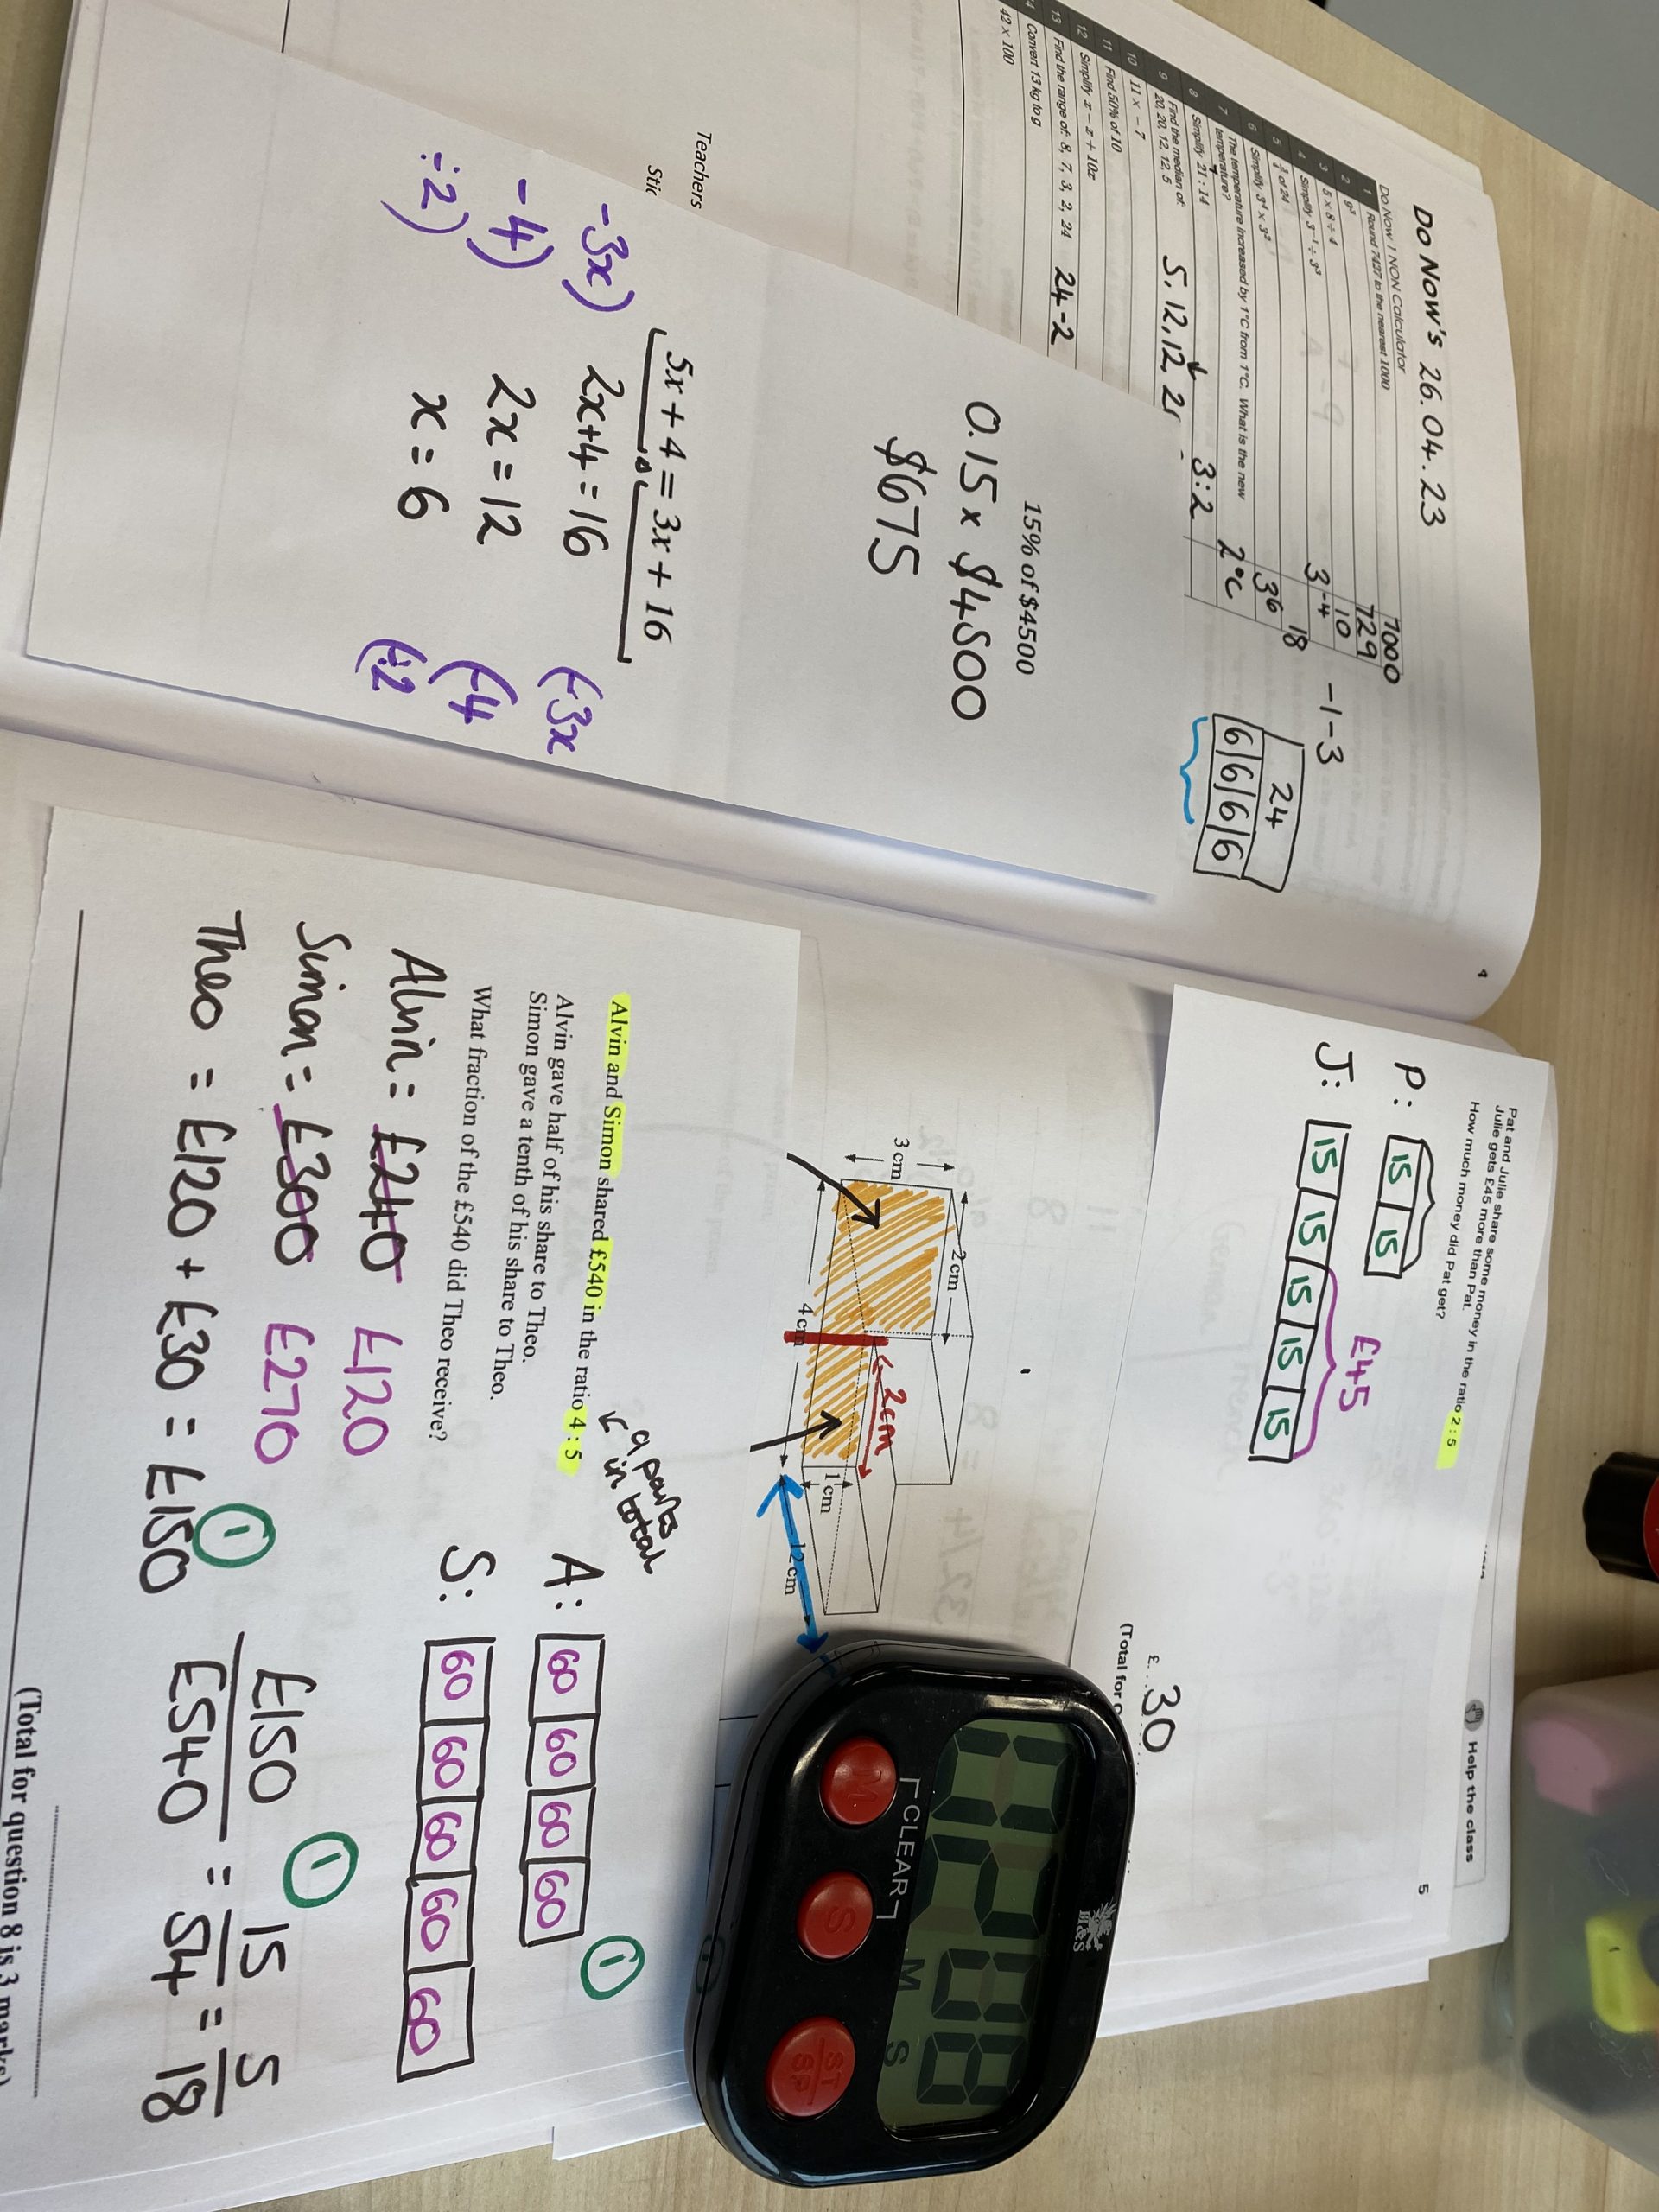 Do Now's 26.04.23
Do Now 1 NON Calculator
1 Round 7427 to the nearest 1000 7000
2 9³ 729
3 5 × 8 ÷ 4 10
4 Simplify 3⁻¹ ÷ 3³ 3⁻⁴ -1-3
5 of 24 18
6 Simplify 3⁴ × 3² 3⁶
7 The temperature increased by 1°C from 1°C. What is the new
temperature? 2°C
8 Simplify 21 : 14 3:2
9 Find the median of:
20, 20, 12, 12, 5 5, 12, 12, 2
10 11 × - 7
11 Find 50% of 10
12 Simplify z − z + 10z
13 Find the range of: 8, 7, 3, 2, 24 24-2
14 Convert 13 kg to g
42 × 100
24
6 6 6 6
4
15% of $4500
0.15 × $4500
$675
Teachers
Stic
5x + 4 = 3x + 16
-3x) 2x+4 = 16 (-3x
-4) 2x = 12 (-4
÷2) x = 6 (÷2
Help the class
5
Pat and Julie share some money in the ratio 2 : 5
Julie gets £45 more than Pat.
How much money did Pat get?
P: 15 15
£45
J: 15 15 15 15 15
£ 30
(Total for
3 cm
2 cm
4 cm
2cm
1 cm
12 cm
Alvin and Simon shared £540 in the ratio 4 : 5
9 parts
in total
Alvin gave half of his share to Theo.
Simon gave a tenth of his share to Theo.
What fraction of the £540 did Theo receive?
A: 60 60 60 60 1
S: 60 60 60 60 60
Alvin = £240 £120
Simon = £300 £270
Theo = £120 + £30 = £150 1
£150/£540 = 15/54 = 5/18 1
(Total for question 8 is 3 marks)
H&S
M S
CLEAR
M
S
ST
SP